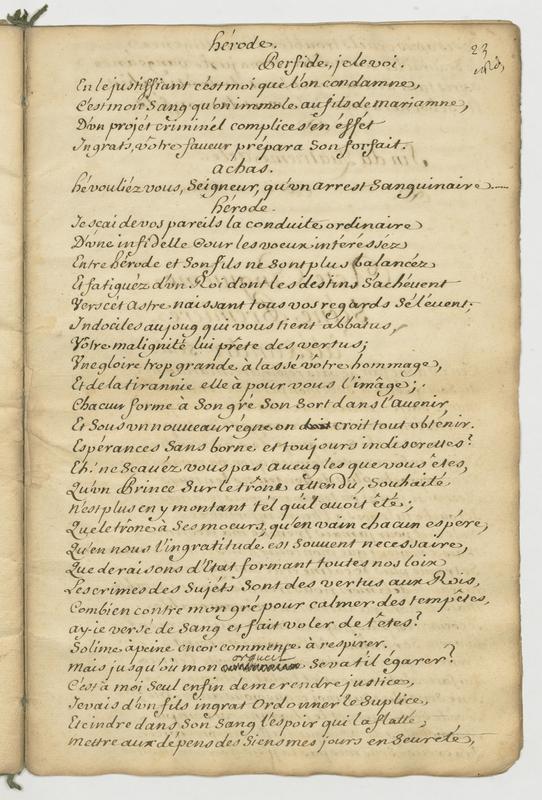 hérode.
23
Perfide, je le voi.
En le justiffiant c'est moi que l'on condamne,
C'est mon Sang qu'on immole au fils de mariamne,
D'vn projét criminél complices en éffét
Ingrats, vôtre faueur prépara Son forfait.
achas.
hé vouliéz vous, Seigneur, qu'vn arrest Sanguinaire.....
hérode.
Je sçai de vos pareils la conduite ordinaire
D'vne infidelle Cour les voeux intérésséz
Entre hérode et Son fils ne Sont plus balancéz
Et fatiguéz d'vn Roi dont les destins S'achévent
Vers cét Astre naissant tous vos regards S'élévent;
Indociles au joug qui vous tient abbatus,
Vôtre malignité lui prête des vertus;
Vne gloire trop grande à lassé vôtre hommage,
Et de la tirannie elle à pour vous l'image;
Chacun forme à Son gré Son Sort dans l'Auenir
Et Sous vn nouueau régne on croit tout obténir.
Espérances Sans borne et toujours indiscrettes!
Eh! ne Sçauéz vous pas aueugles que vous êtes,
Qu'vn Prince Sur le trône attendu, Souhaité
n'est plus en y montant tél qu'il auoit été;
Que le trône à Ses moeurs, qu'en vain chacun espére,
Qu'en nous l'ingratitude est Souuent necessaire,
Que de raisons d'Etat formant toutes nos loix
Les crimes des Sujéts Sont des vertus aux Rois,
Combien contre mon gré pour calmer des tempêtes,
ay-ie versé de Sang et fait voler de têtes?
Solime à peine encor commence à respirer.
mais jusqu'où mon orgueil Se va t'il égarer?
C'est à moi Seul enfin de me rendre justice,
Je vais d'vn fils ingrat Ordonner le Suplice,
Eteindre dans Son Sang l'espoir qui la flatte,
mettre aux dépens des Siens mes jours en Seureté,